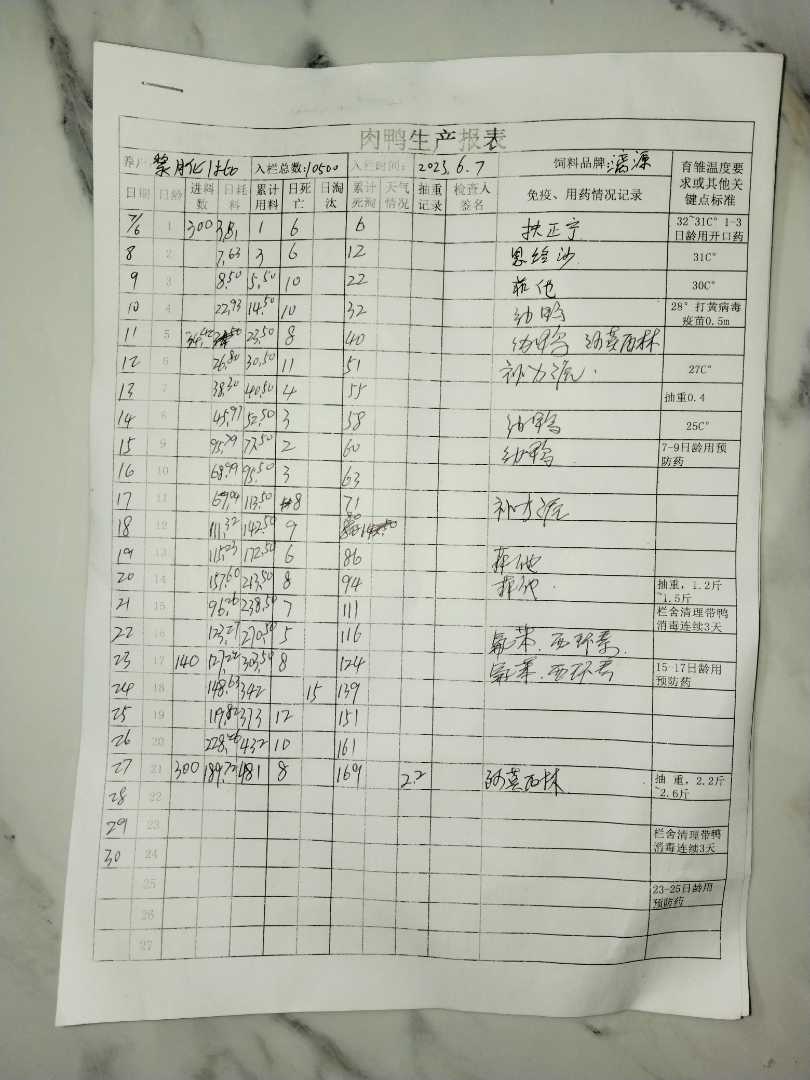 肉鸭生产报表
养户 入栏总数:10500 入栏时间: 2023.6.7 饲料品牌: 漓源 育雏温度要求或其他关键点标准
日期 日龄 进料数 日耗料 累计用料 日死亡 日淘汰 累计死淘 天气情况 抽重记录 检查人签名 免疫、用药情况记录
7/6 1 300 1 6 6 扶正宁 32~31C° 1-3日龄用开口药
8 2 7.63 3 6 12 恩给沙 31C°
9 3 8.50 5.50 10 22 30C°
10 4 22.93 14.50 10 32 幼鸭 28° 打黄病毒疫苗0.5m
11 5 23.50 8 40 幼鸭 沙莫西林
12 6 26.80 30.50 11 51 27C°
13 7 38.30 40.50 4 55 抽重0.4
14 8 45.97 52.50 3 58 幼鸭 25C°
15 9 95.79 77.50 2 60 幼鸭 7-9日龄用预防药
16 10 68.99 95.50 3 63
17 11 69.04 113.50 8 71
18 12 111.32 142.50 9 80
19 13 115.23 172.50 6 86
20 14 157.60 213.50 8 94 抽重，1.2斤~1.5斤
21 15 96.26 238.50 7 111 栏舍清理带鸭消毒连续3天
22 16 123.27 270.50 5 116 氟苯.西环素.
23 17 140 127.22 303.50 8 124 氟苯.西环素 15-17日龄用预防药
24 18 148.63 342 15 139
25 19 119.82 373 12 151
26 20 228.26 432 10 161
27 21 300 189.72 481 8 169 2.2 沙莫西林 抽 重，2.2斤~2.6斤
28 22
29 23 栏舍清理带鸭消毒连续3天
30 24
25 23-25日龄用预防药
26
27